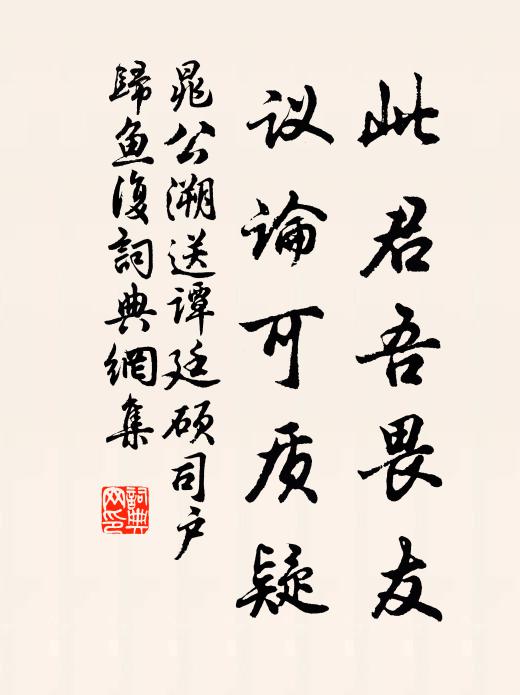 此君吾畏友
议论可质疑
晁公溯送谭廷硕司户
歸鱼復詞典網集
詞典网印